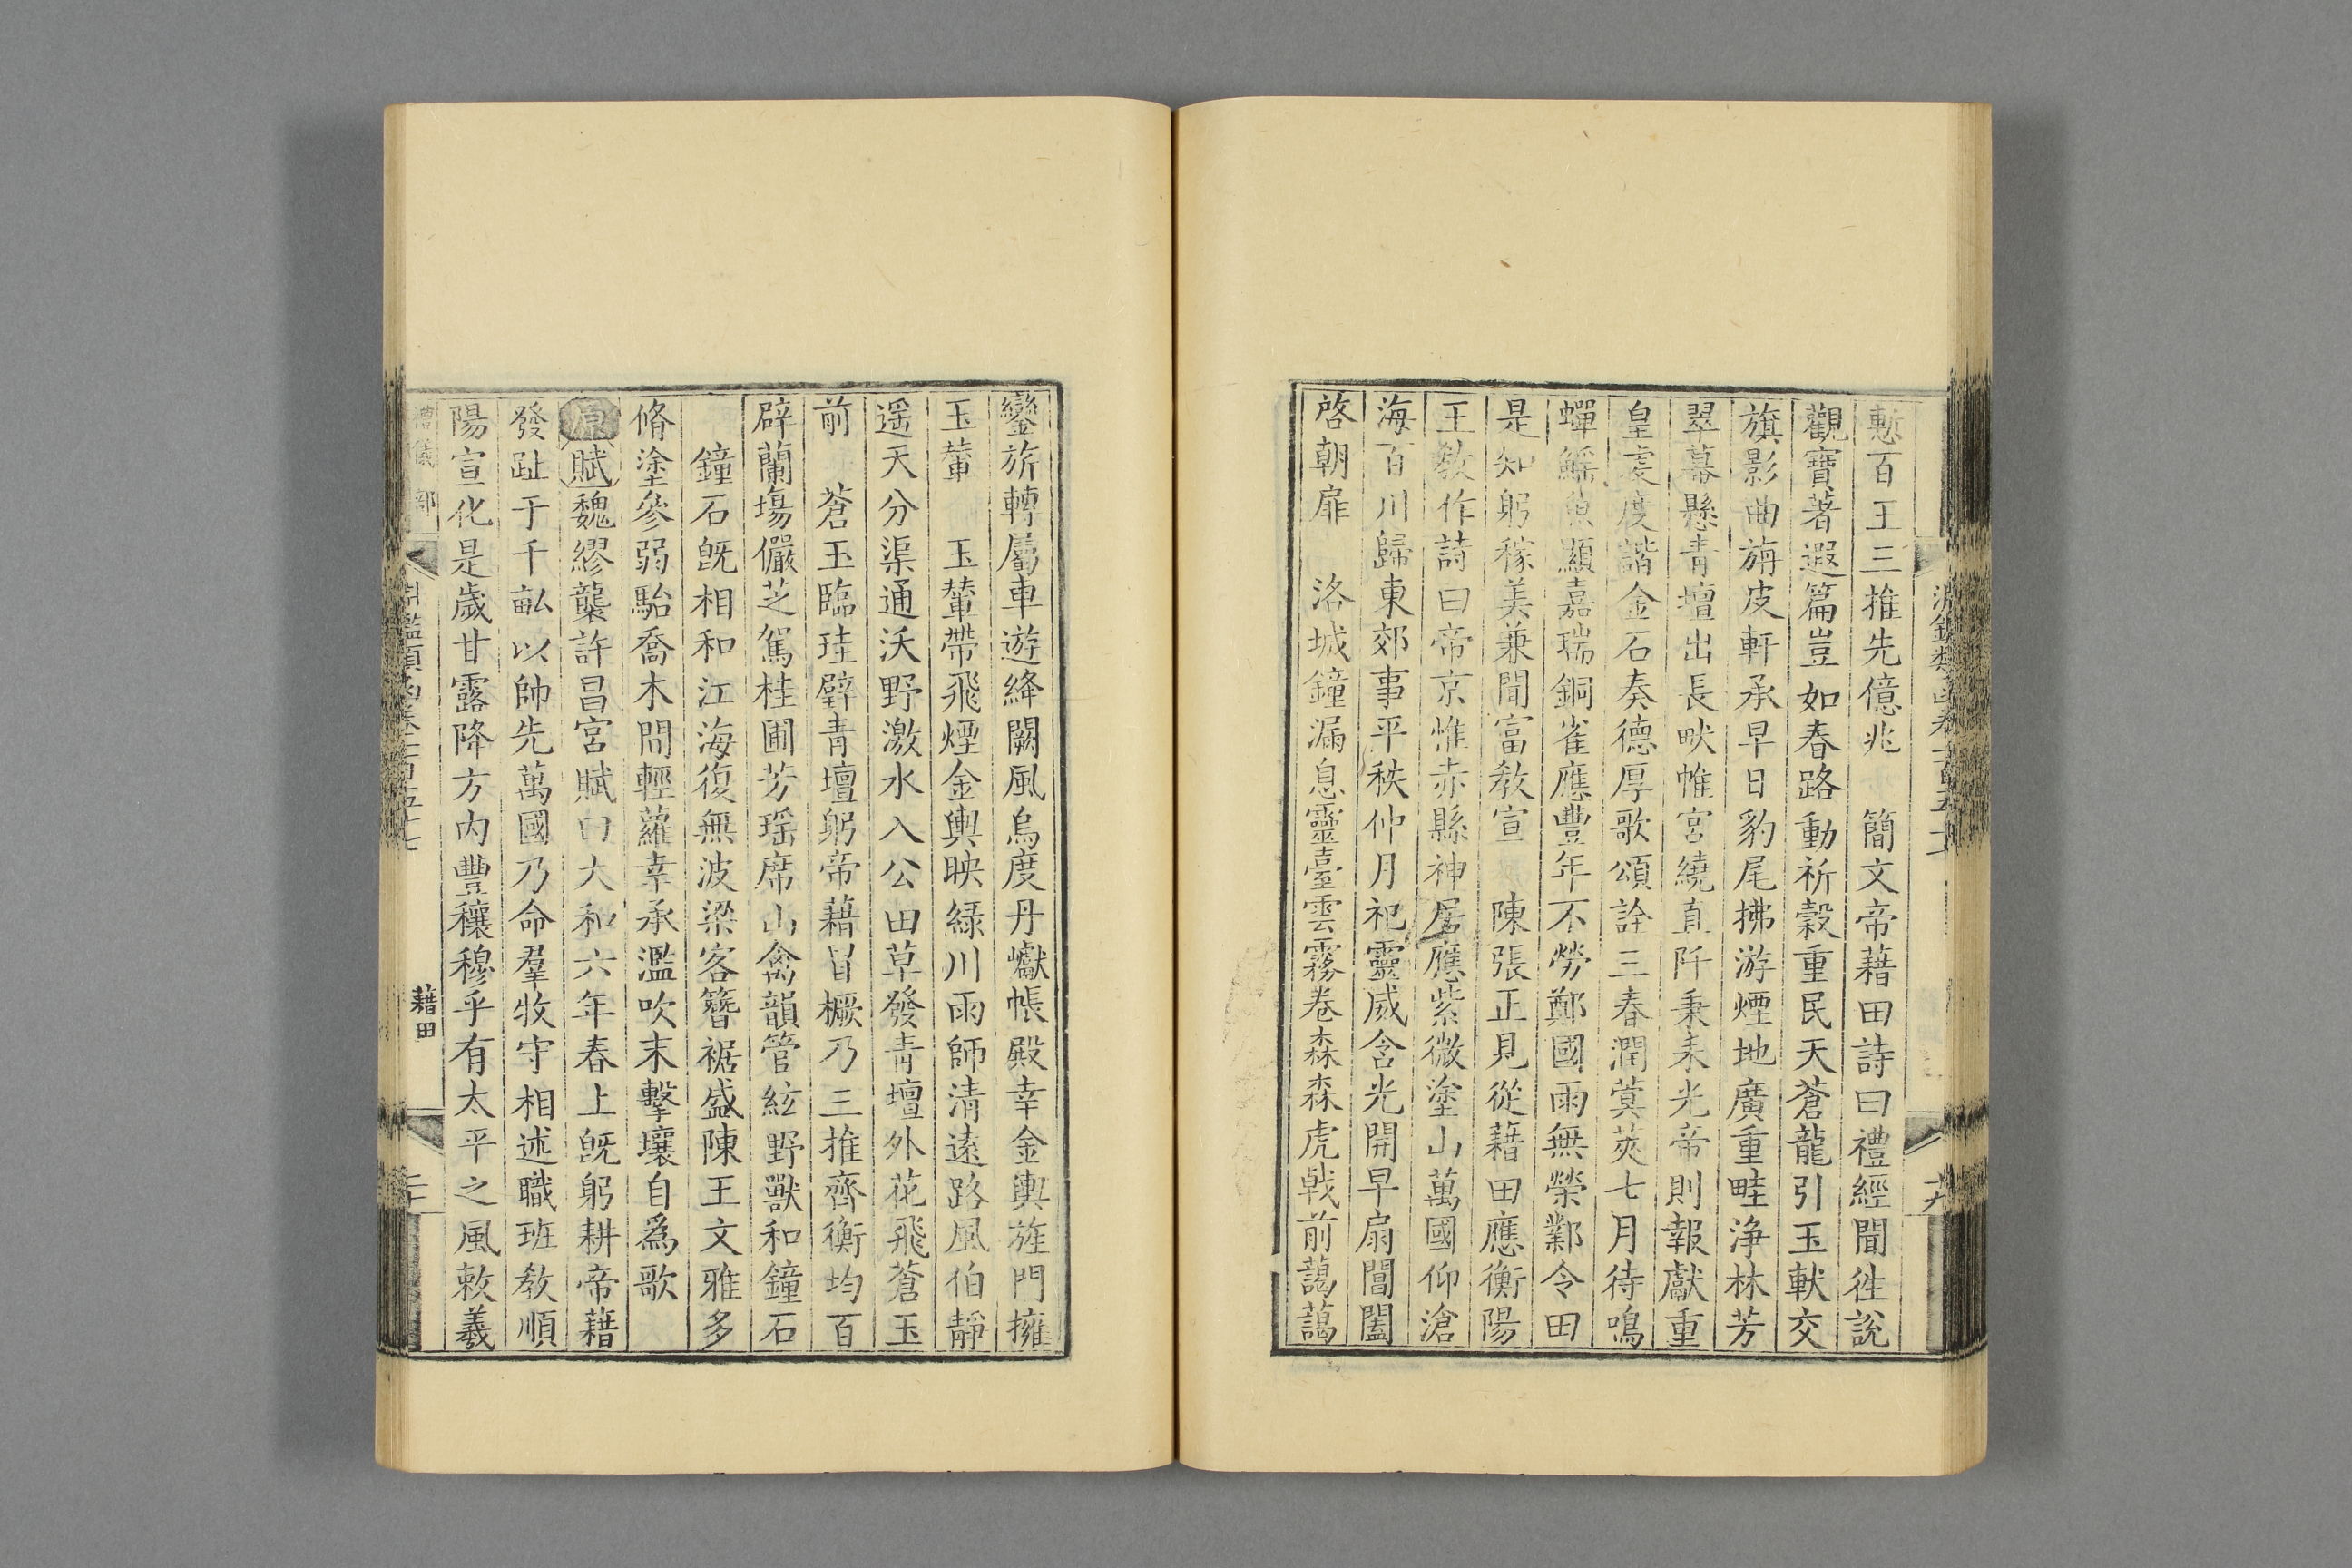 慙百王三推先億兆　簡文帝藉田詩曰禮經聞徃說
觀寶著遐篇豈如春路動祈穀重民天蒼龍引玉軑交
旗影曲旃皮軒承早日豹尾拂游煙地廣重畦浄林芳
翠幕懸青壇出長畎帷宮繞直阡秉耒光帝則報獻重
皇虔度諧金石奏德厚歌頌詮三春潤蓂莢七月待鳴
蟬鰩魚顯嘉瑞銅雀應豐年不勞鄭國雨無榮鄴令田
是知躬稼美兼聞富教宣　陳張正見從藉田應衡陽
王教作詩曰帝京惟赤縣神居應紫微塗山萬國仰滄
海百川歸東郊事平秩仲月祀靈威含光開早扇閶闔
啓朝扉　洛城鐘漏息靈臺雲霧卷森森虎戟前藹藹
鑾旂轉屬車遊絳闕風烏度丹巘帳殿幸金輿旌門擁
玉輦　玉輦帶飛煙金輿映緑川雨師清遠路風伯靜
遥天分渠通沃野激水入公田草發青壇外花飛蒼玉
前　蒼玉臨珪璧青壇躬帝藉冒橛乃三推齊衡均百
辟蘭塲儼芝駕桂圃芳瑶席山禽韻管絃野獸和鐘石
鐘石旣相和江海復無波梁客簪裾盛陳王文雅多
脩塗參弱駘喬木間輕蘿幸承濫吹末擊壤自爲歌
原賦魏繆襲許昌宮賦曰大和六年春上旣躬耕帝藉
發趾于千畝以帥先萬國乃命羣牧守相述職班教順
陽宣化是歲甘露降方内豐穰穆乎有太平之風敕羲
禮儀部
淵鑑類函卷一百五十七
藉田
二十